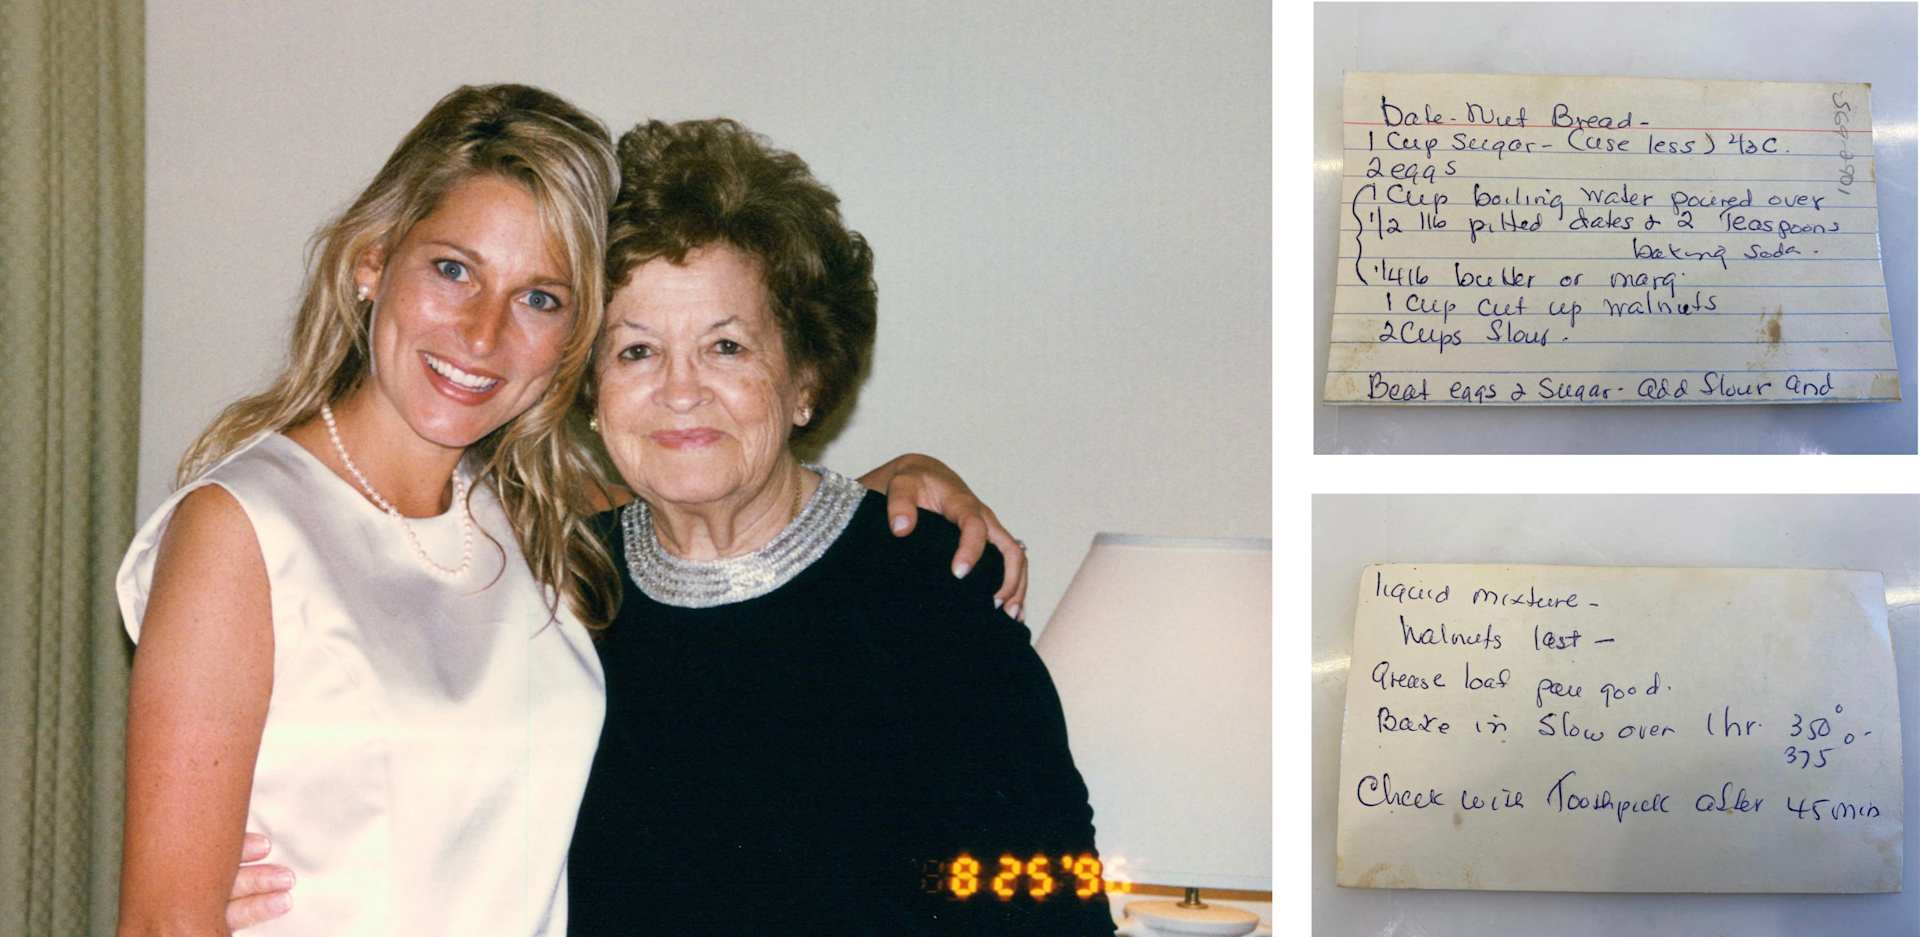 8 25 '96
Date-Nut Bread-
1 Cup Sugar - (use less) 2/3 C.
2 eggs
1 Cup boiling water poured over
1/2 lb pitted dates & 2 Teaspoons
baking Soda.
1/4 lb butter or marg.
1 cup cut up walnuts
2 Cups flour.
Beat eggs & Sugar- add flour and
569-2901
liquid mixture-
Walnuts last-
Grease loaf pan good.
Bake in Slow oven 1 hr. 350°-
375°
Check with Toothpick after 45 min